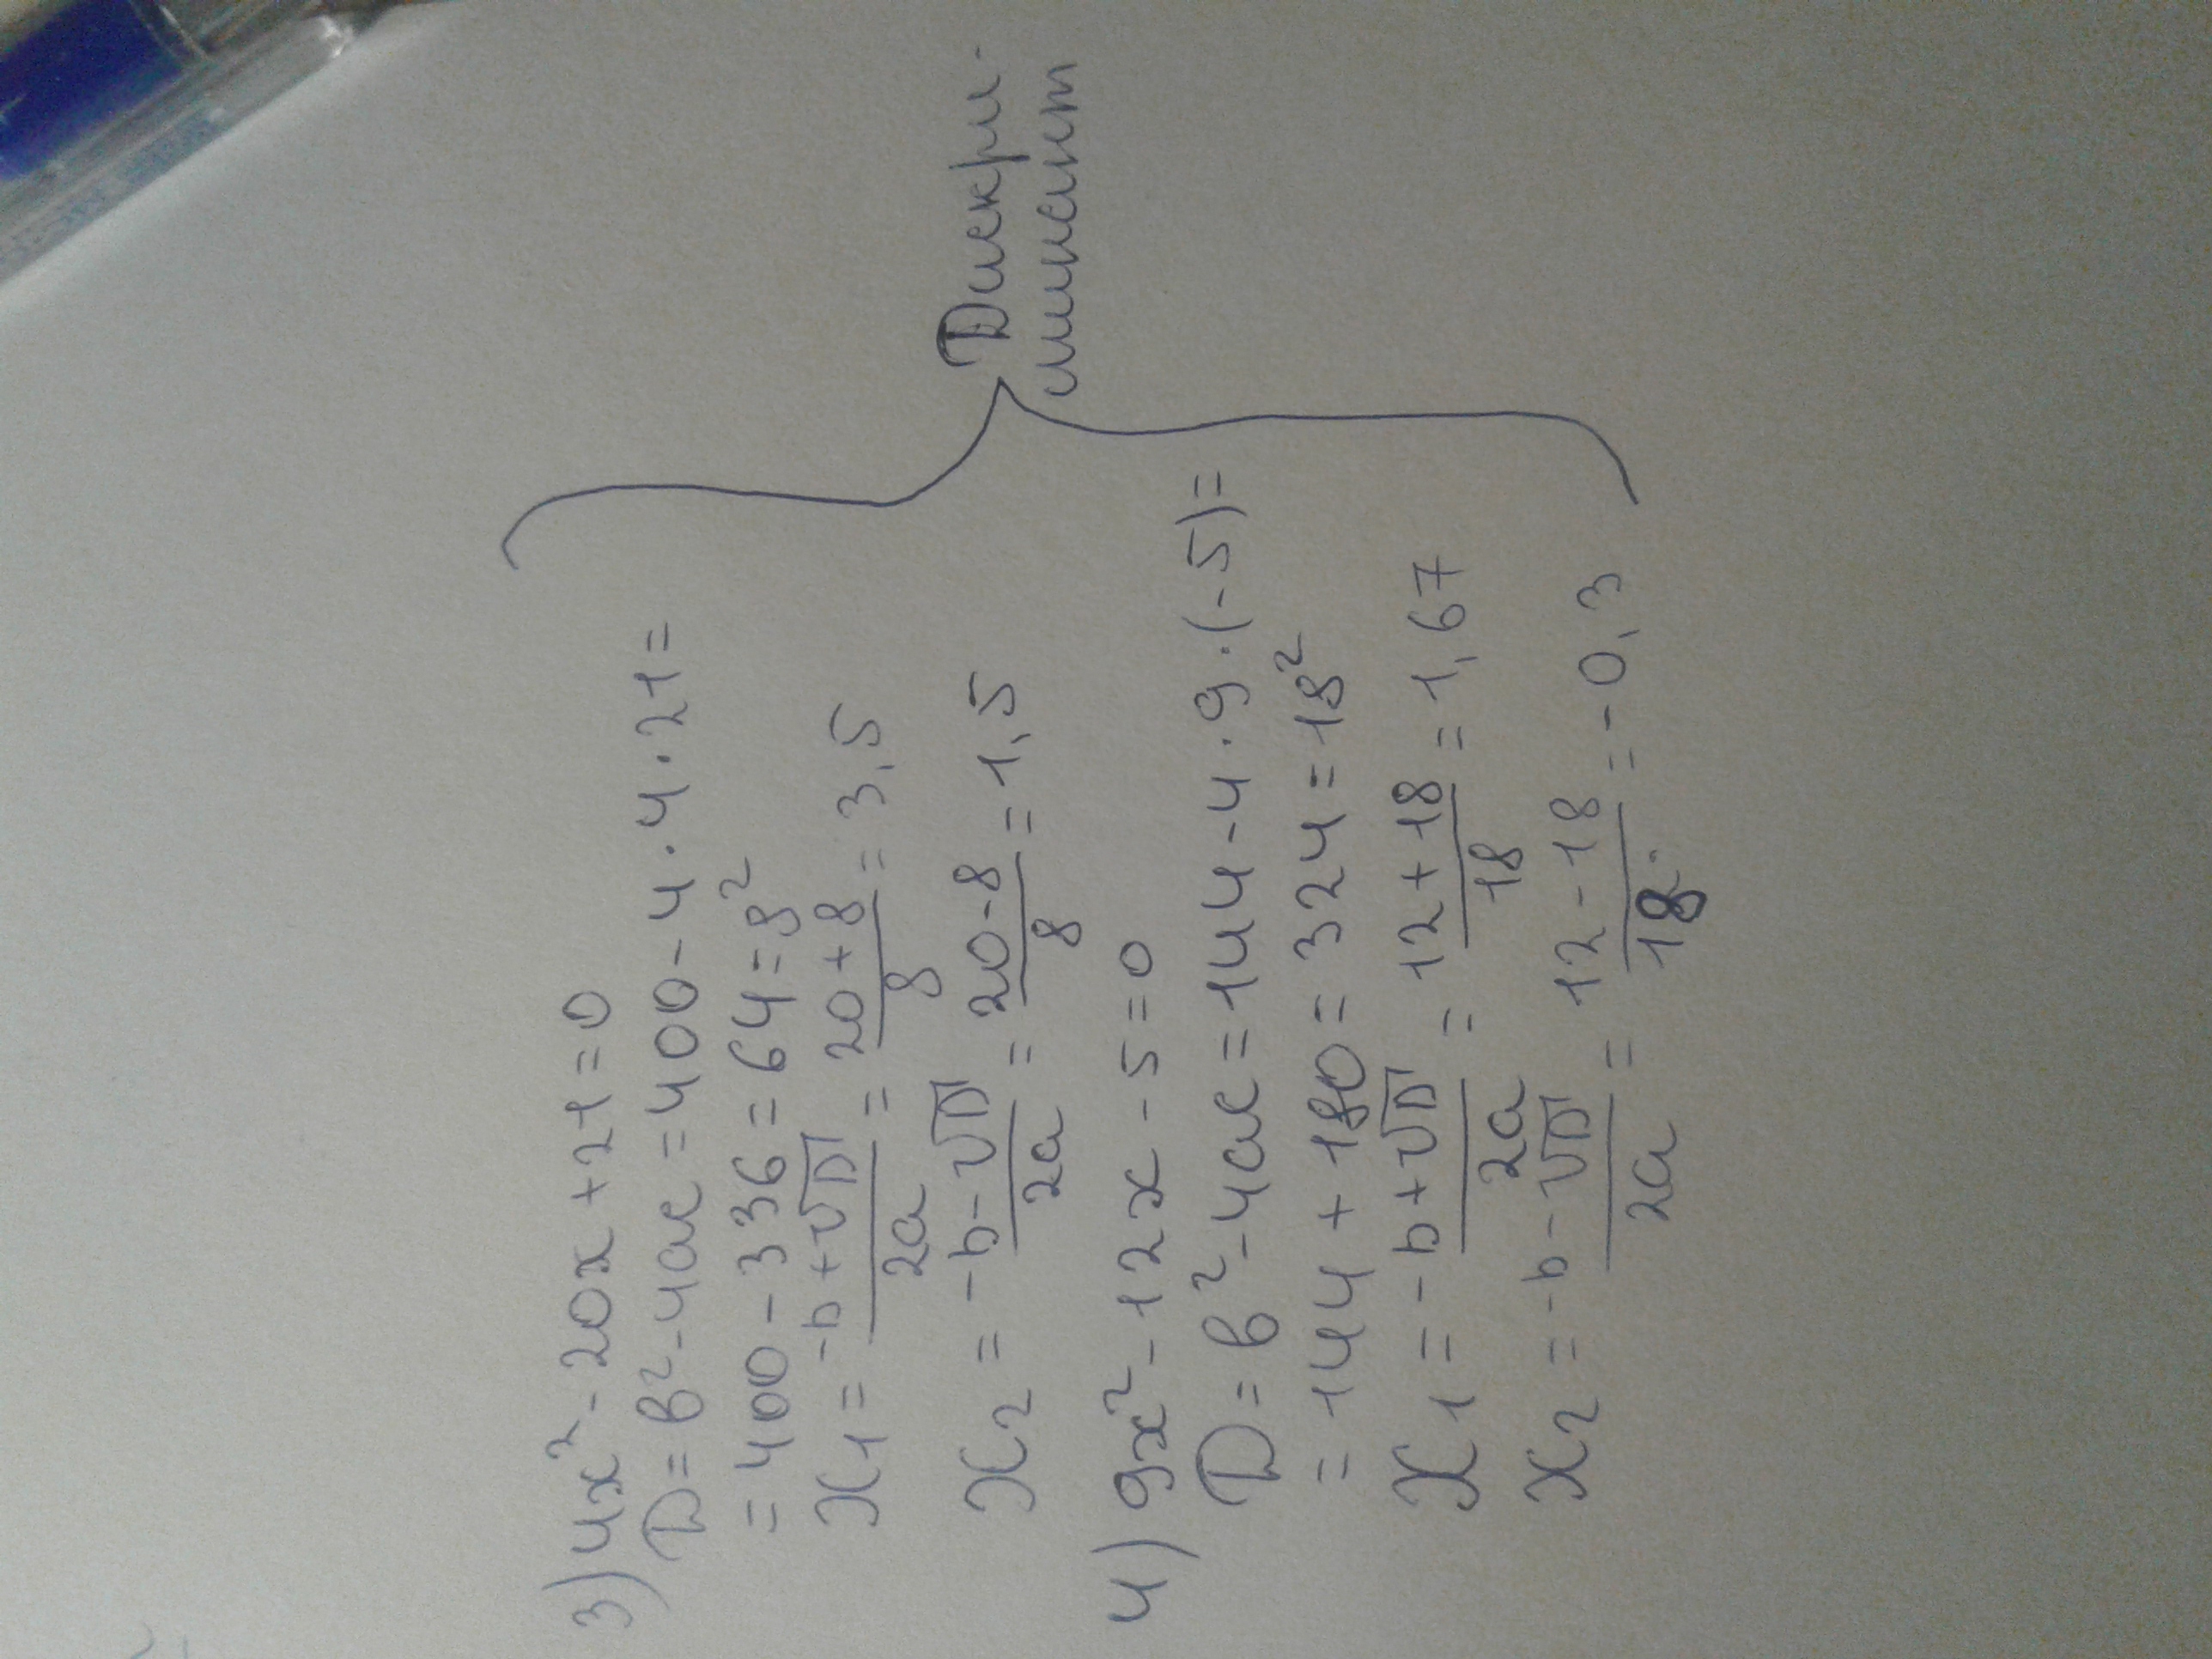 3) 4x² - 20x + 21 = 0
D = b² - 4ac = 400 - 4 · 4 · 21 =
= 400 - 336 = 64 = 8²
x₁ = (-b + √D)/2a = (20 + 8)/8 = 3,5
x₂ = (-b - √D)/2a = (20 - 8)/8 = 1,5
4) 9x² - 12x - 5 = 0
D = b² - 4ac = 144 - 4 · 9 · (-5) =
= 144 + 180 = 324 = 18²
x₁ = (-b + √D)/2a = (12 + 18)/18 = 1,67
x₂ = (-b - √D)/2a = (12 - 18)/18 = -0,3
Дискри-
минант